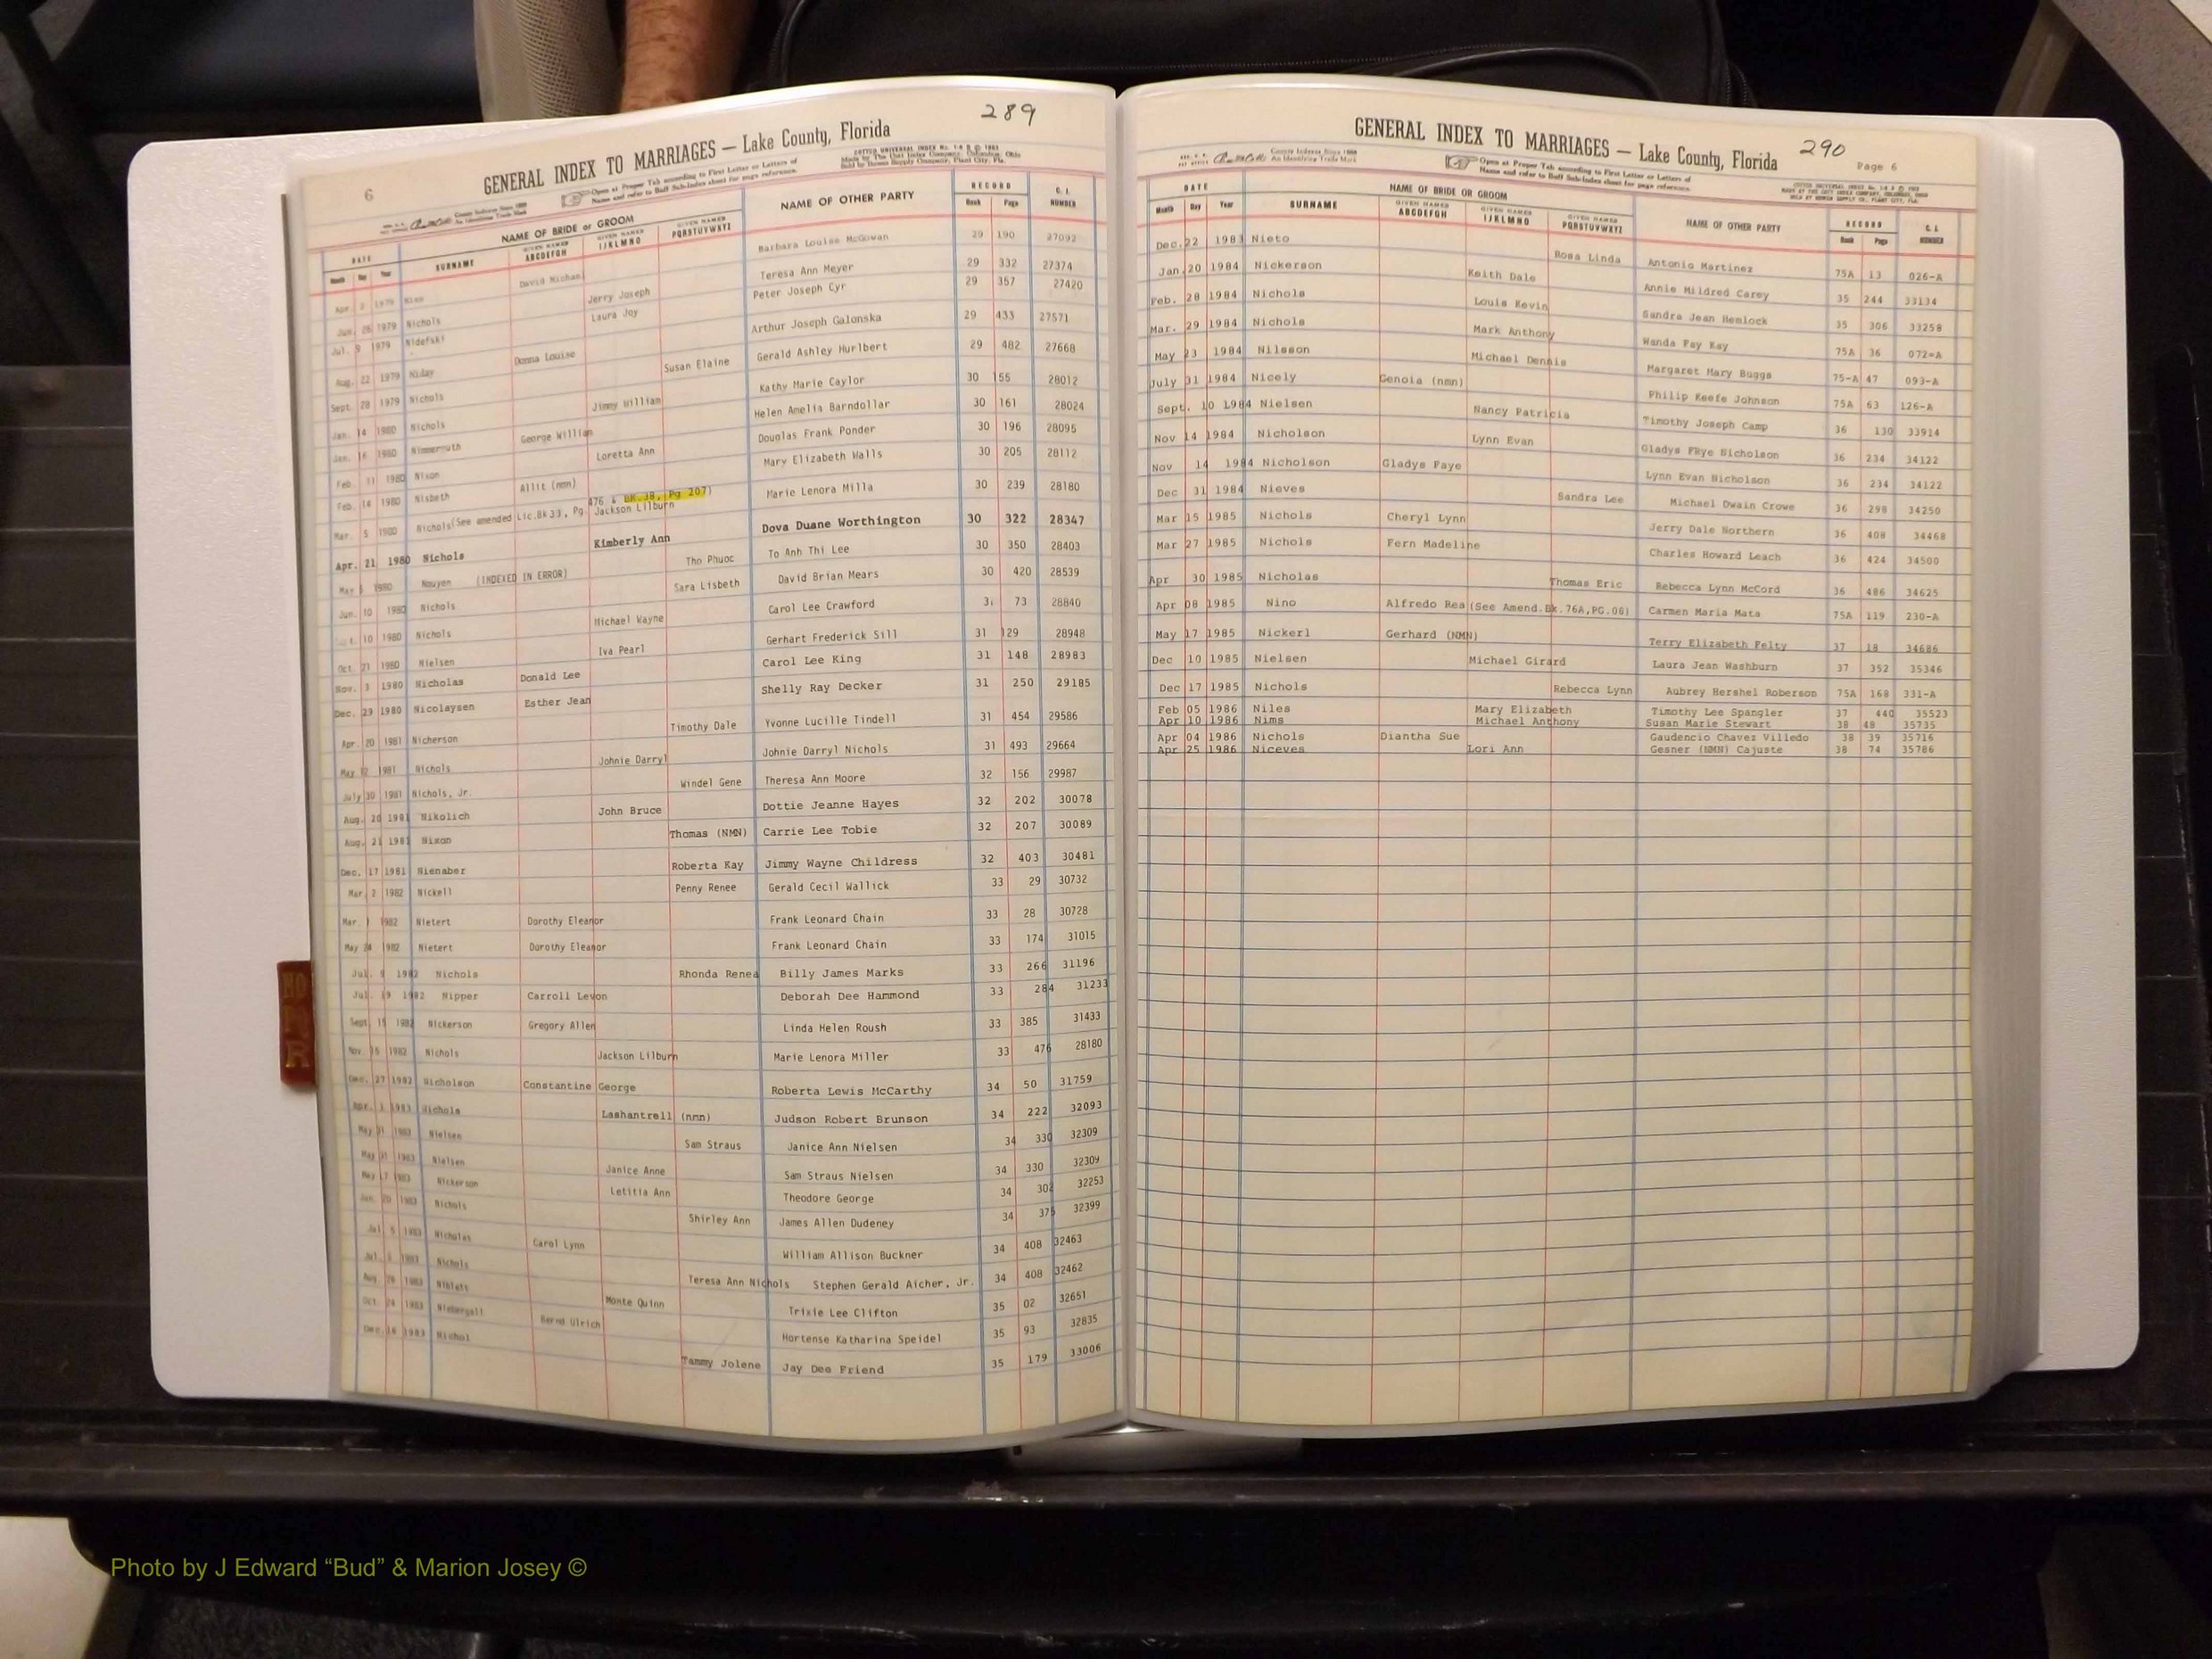 289
6
GENERAL INDEX TO MARRIAGES — Lake County, Florida
COTTCO UNIVERSAL INDEX
Made by The Cott Index Company, Columbus, Ohio
Sold by Bowen Supply Company, Plant City, Fla.
County Indexes Since 1888
An Identifying Trade Mark
Open at Proper Tab according to First Letter or Letters of
Name and refer to Buff Sub-Index sheet for page reference.
DATE NAME OF BRIDE or GROOM NAME OF OTHER PARTY RECORD C. I.
Month Day Year SURNAME GIVEN NAMES ABCDEFGH GIVEN NAMES IJKLMNO GIVEN NAMES PQRSTUVWXYZ Book Page NUMBER
Apr. 2 1979 David Michael Barbara Louise McGowan 29 190 27092
Jun. 26 1979 Nichols Jerry Joseph Teresa Ann Meyer 29 332 27374
Jul. 9 1979 Nidefski Laura Joy Peter Joseph Cyr 29 357 27420
Aug. 22 1979 Niday Donna Louise Arthur Joseph Galonska 29 433 27571
Sept. 28 1979 Nichols Susan Elaine Gerald Ashley Hurlbert 29 482 27668
Jan. 14 1980 Nichols Jimmy William Kathy Marie Caylor 30 155 28012
Jan. 16 1980 Nimmermuth George William Helen Amelia Barndollar 30 161 28024
Feb. 11 1980 Nixon Loretta Ann Douglas Frank Ponder 30 196 28095
Feb. 14 1980 Nisbeth Allit (nmn) Mary Elizabeth Walls 30 205 28112
Mar. 5 1980 Nichols (See amended Lic.Bk 33, Pg. 476 & BK.38, Pg 207) Jackson Lilburn Marie Lenora Milla 30 239 28180
Apr. 21 1980 Nichols Kimberly Ann Dova Duane Worthington 30 322 28347
May 1980 Nguyen (INDEXED IN ERROR) Tho Phuoc To Anh Thi Lee 30 350 28403
Jun. 10 1980 Nichols Sara Lisbeth David Brian Mears 30 420 28539
10 1980 Nichols Michael Wayne Carol Lee Crawford 31 73 28840
Oct. 21 1980 Nielsen Iva Pearl Gerhart Frederick Sill 31 129 28948
Nov. 3 1980 Nicholas Donald Lee Carol Lee King 31 148 28983
Dec. 29 1980 Nicolaysen Esther Jean Shelly Ray Decker 31 250 29185
Apr. 20 1981 Nicherson Timothy Dale Yvonne Lucille Tindell 31 454 29586
May 12 1981 Nichols Johnie Darryl Johnie Darryl Nichols 31 493 29664
July 30 1981 Nichols, Jr. Windel Gene Theresa Ann Moore 32 156 29987
Aug. 20 1981 Nikolich John Bruce Dottie Jeanne Hayes 32 202 30078
Aug. 21 1981 Nixon Thomas (NMN) Carrie Lee Tobie 32 207 30089
Dec. 17 1981 Nienaber Roberta Kay Jimmy Wayne Childress 32 403 30481
Mar. 2 1982 Nickell Penny Renee Gerald Cecil Wallick 33 29 30732
Mar. 1 1982 Nietert Dorothy Eleanor Frank Leonard Chain 33 28 30728
May 24 1982 Nietert Dorothy Eleanor Frank Leonard Chain 33 174 31015
Jul. 9 1982 Nichols Rhonda Renea Billy James Marks 33 266 31196
Jul. 19 1982 Nipper Carroll Levon Deborah Dee Hammond 33 284 31233
Sept. 15 1982 Nickerson Gregory Allen Linda Helen Roush 33 385 31433
Nov. 16 1982 Nichols Jackson Lilburn Marie Lenora Miller 33 476 28180
Dec. 27 1982 Nicholson Constantine George Roberta Lewis McCarthy 34 50 31759
Apr. 1 1983 Nichols Lashantrell (nmn) Judson Robert Brunson 34 222 32093
May 31 1983 Nielsen Sam Straus Janice Ann Nielsen 34 330 32309
May 31 1983 Nielsen Janice Anne Sam Straus Nielsen 34 330 32309
May 17 1983 Nickerson Letitia Ann Theodore George 34 302 32253
Jun. 20 1983 Nichols Shirley Ann James Allen Dudeney 34 375 32399
Jul 5 1983 Nicholas Carol Lynn William Allison Buckner 34 408 32463
Jul. 1983 Nichols Teresa Ann Nichols Stephen Gerald Aicher, Jr. 34 408 32462
Aug. 26 1983 Niblets Monte Quinn Trixie Lee Clifton 35 02 32651
Oct. 24 1983 Niebergall Bernd Ulrich Hortense Katharina Speidel 35 93 32835
Dec. 16 1983 Nichol Tammy Jolene Jay Dee Friend 35 179 33006
290
Page 6
GENERAL INDEX TO MARRIAGES — Lake County, Florida
County Indexes Since 1888
An Identifying Trade Mark
Open at Proper Tab according to First Letter or Letters of
Name and refer to Buff Sub-Index sheet for page reference.
DATE NAME OF BRIDE OR GROOM NAME OF OTHER PARTY RECORD C. I.
Month Day Year SURNAME GIVEN NAMES ABCDEFGH GIVEN NAMES IJKLMNO GIVEN NAMES PQRSTUVWXYZ Book Page NUMBER
Dec. 22 1983 Nieto Rosa Linda Antonio Martinez 75A 13 026-A
Jan. 20 1984 Nickerson Keith Dale Annie Mildred Carey 35 244 33134
Feb. 28 1984 Nichols Louis Kevin Sandra Jean Hemlock 35 306 33258
Mar. 29 1984 Nichols Mark Anthony Wanda Fay Kay 75A 36 072-A
May 23 1984 Nilsson Michael Dennis Margaret Mary Buggs 75-A 47 093-A
July 31 1984 Nicely Genoia (nmn) Philip Keefe Johnson 75A 63 126-A
Sept. 10 1984 Nielsen Nancy Patricia Timothy Joseph Camp 36 130 33914
Nov 14 1984 Nicholson Lynn Evan Gladys FRye Nicholson 36 234 34122
Nov 14 1984 Nicholson Gladys Faye Lynn Evan Nicholson 36 234 34122
Dec 31 1984 Nieves Sandra Lee Michael Dwain Crowe 36 298 34250
Mar 15 1985 Nichols Cheryl Lynn Jerry Dale Northern 36 408 34468
Mar 27 1985 Nichols Fern Madeline Charles Howard Leach 36 424 34500
Apr 30 1985 Nicholas Thomas Eric Rebecca Lynn McCord 36 486 34625
Apr 08 1985 Nino Alfredo Rea (See Amend.Bk.76A,PG.08) Carmen Maria Mata 75A 119 230-A
May 17 1985 Nickerl Gerhard (NMN) Terry Elizabeth Felty 37 18 34686
Dec 10 1985 Nielsen Michael Girard Laura Jean Washburn 37 352 35346
Dec 17 1985 Nichols Rebecca Lynn Aubrey Hershel Roberson 75A 168 331-A
Feb 05 1986 Niles Mary Elizabeth Timothy Lee Spangler 37 440 35523
Apr 10 1986 Nims Michael Anthony Susan Marie Stewart 38 48 35735
Apr 04 1986 Nichols Diantha Sue Gaudencio Chavez Villedo 38 39 35716
Apr 25 1986 Niceves Lori Ann Gesner (NMN) Cajuste 38 74 35786
Photo by J Edward “Bud” & Marion Josey ©